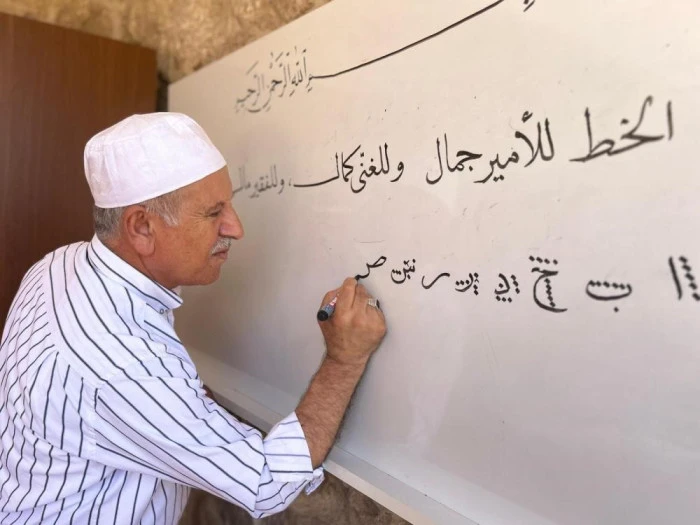 بسم الله الرَّحمٰن الرَّحيم
الخط للأمير جمال وللغنّى كمال، وللفقير مال
ا ب ح د ر ص